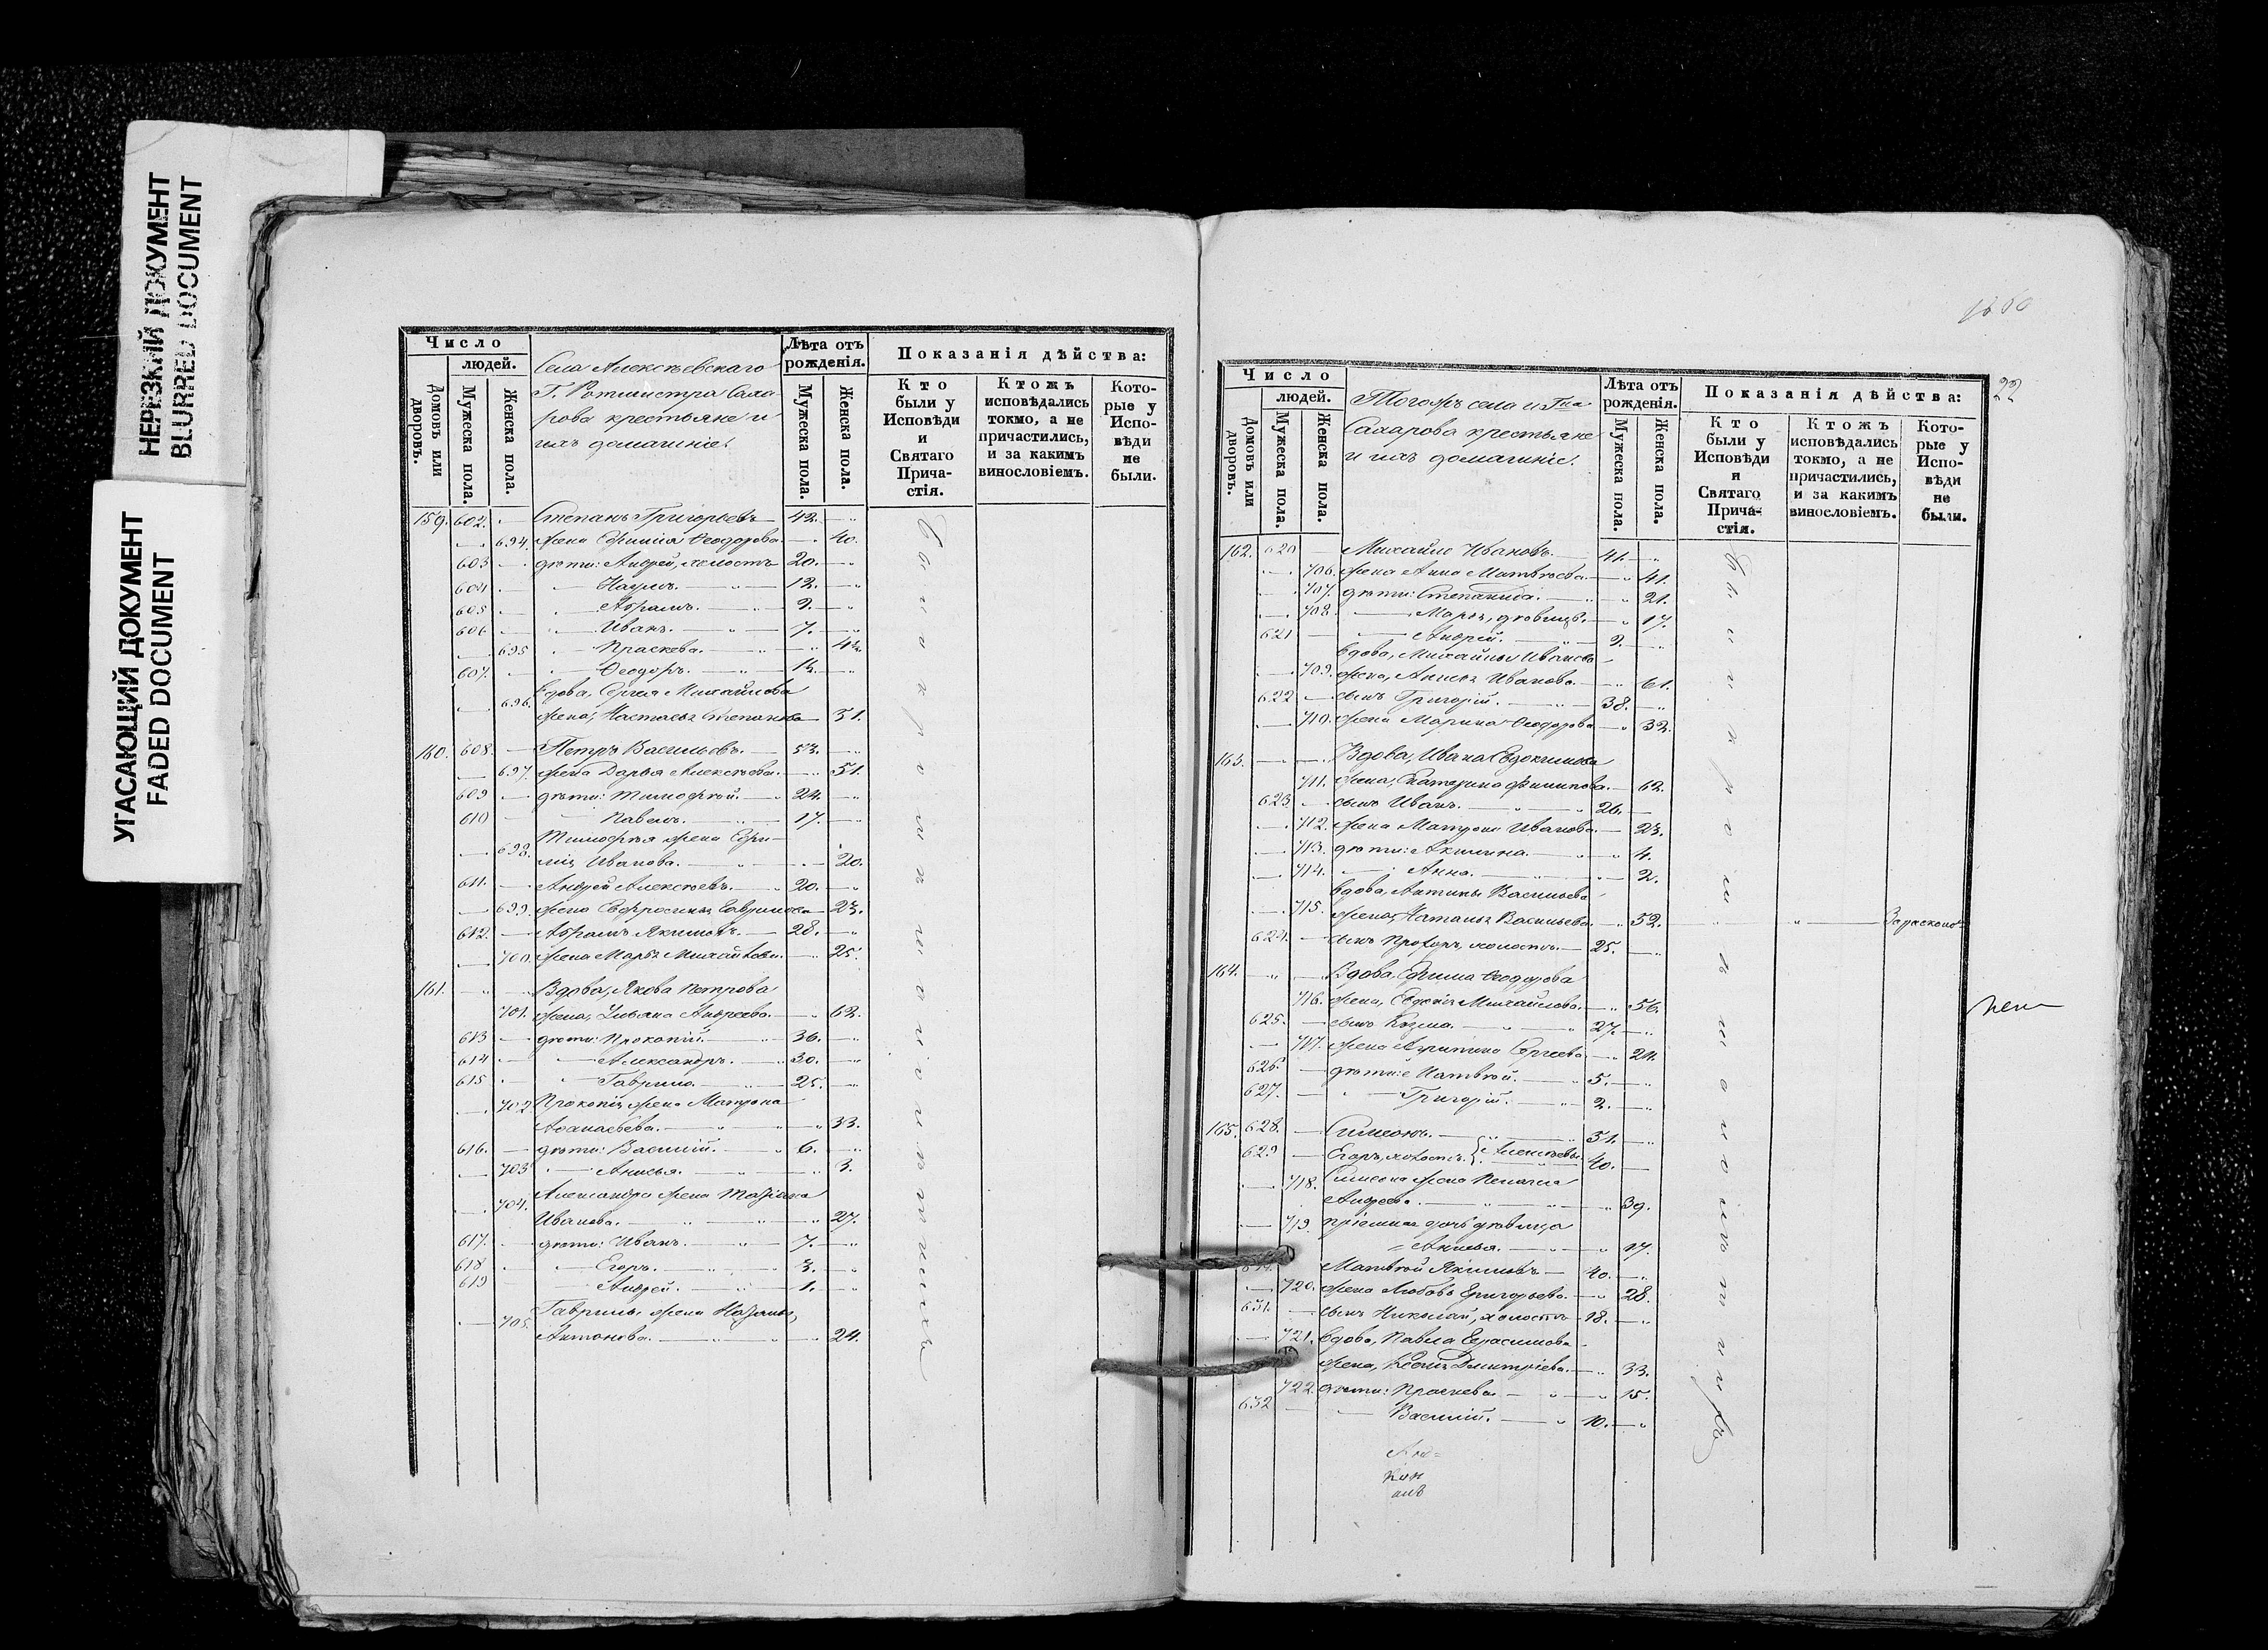 НЕРЕЗКИЙ ДОКУМЕНТ
BLURRED DOCUMENT
УГАСАЮЩИЙ ДОКУМЕНТ
FADED DOCUMENT
Число
людей.
Домовъ или дворовъ.
Мужеска пола.
Женска пола.
Села Алексѣевскаго
Г. Ротмистра Саха
рова крестьяне и
ихъ домашніе.
Лѣта отъ рожденія.
Мужеска пола.
Женска пола.
Показанія дѣйства:
Кто были у Исповѣди и Святаго Прича-стія.
Ктожъ исповѣдались токмо, а не причастились, и за какимъ винословіемъ.
Кото-рые у Испо-вѣди не были.
159. 602. Степанъ Григорьевъ 42.
694. жена Ефимія Ѳеодорова. 40.
603 дѣти: Андрей, холостъ 20.
604 Наумъ. 12.
605 Абрамъ. 9.
606 Иванъ. 7.
695 Праскева.
607. Ѳеодоръ.
696. вдова, Сергія Михайлова
жена, Настасья Степанова 51.
160. 608. Петръ Васильевъ. 53.
697. жена Дарья Алексѣева. 51.
609 дѣти: Тимофей. 24.
610 Павелъ. 17.
698. Тимофѣя жена Ефи-
мія Иванова. 20.
611. Андрей Алексѣевъ. 20.
699. жена Евфросинья Гаврилова 23.
612. Абрамъ Якимовъ. 28.
700. жена Марья Михайлова. 25.
161. Вдова, Якова Петрова
701. жена, Ульяна Андреева. 62.
613 дѣти: Прокопій. 36.
614 Александръ. 30.
615 Гаврило. 25.
702 Прокопія жена Матрона
Аѳанасьева. 33.
616. дѣти: Василій. 6.
703 Анисья. 3.
704. Александра жена Татіана
Иванова. 27.
617. дѣти: Иванъ. 7.
618 Егоръ. 3.
619 Андрей. 1.
705. Гаврилы жена Наталья
Антонова. 24.
22
Число
людей.
Домовъ или дворовъ.
Мужеска пола.
Женска пола.
Тогожъ села и Гна
Сахарова крестьяне
и ихъ домашніе.
Лѣта отъ рожденія.
Мужеска пола.
Женска пола.
Показанія дѣйства:
Кто были у Исповѣди и Святаго Прича-стія.
Ктожъ исповѣдались токмо, а не причастились, и за какимъ винословіемъ.
Кото-рые у Испо-вѣди не были.
162. 620 Михайло Ивановъ. 41.
706. жена Анна Матвѣева. 41.
707. дѣти: Степанида. 21.
708. Марья, дѣвица. 17.
621 Андрей. 2.
вдова, Михайлы Иванова
709. жена, Анисья Иванова. 61.
622 сынъ Григорій. 38.
710. жена Марина Ѳеодорова 32.
163. Вдова, Ивана Евдокимова
711. жена, Екатерина Филипова. 62.
623 сынъ Иванъ. 26.
712. жена Матрона Иванова. 23.
713. дѣти: Акилина. 4.
714. Анна. 2.
вдова, Антипы Васильева
715. жена, Наталья Васильева 52. За расколъ
624. сынъ Прохоръ, холостъ. 25.
164. Вдова, Ефима Ѳеодорова
716. жена, Евдокія Михайлова. 56.
625. сынъ Козма. 27.
717. жена Агрипина Сергеева 24.
626. дѣти: Матвѣй. 5.
627. Григорій. 2.
165. 628. Симеонъ. 51.
629 Егоръ, холостъ. Алексѣевы 40.
718. Симеона жена Пелагія
Андреева. 39.
719. пріемная дочь дѣвица
Анисья. 17.
Матвѣй Якимовъ 40.
720. жена Любовь Григорьева. 28.
631. сынъ Николай, холостъ 18.
721. вдова, Павла Герасимова
жена, Ксенія Дмитріева. 33.
722. дѣти: Праскева. 15.
632 Василій. 10.